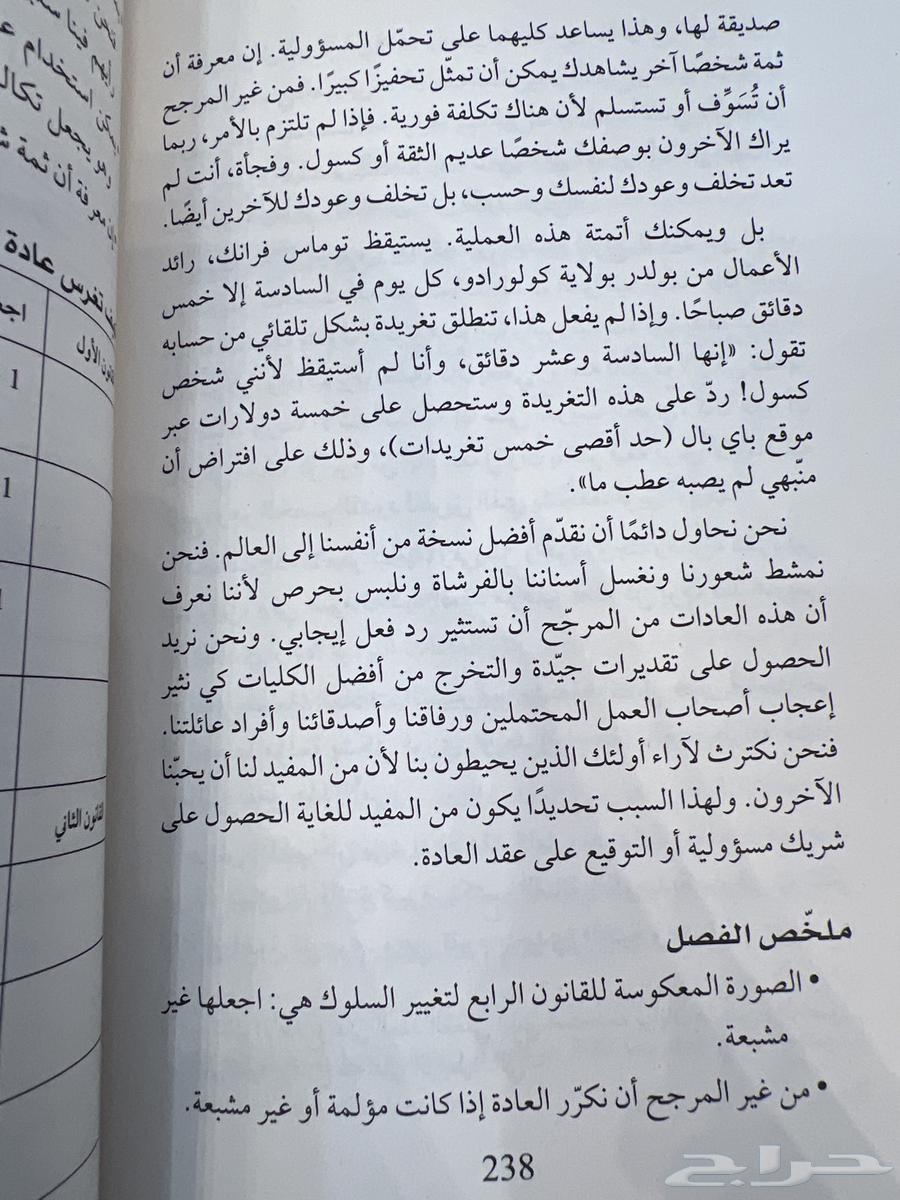 صديقة لها، وهذا يساعد كليهما على تحمّل المسؤولية. إن معرفة أن
ثمة شخصًا آخر يشاهدك يمكن أن تمثّل تحفيزًا كبيرًا. فمن غير المرجح
أن تُسَوِّف أو تستسلم لأن هناك تكلفة فورية. فإذا لم تلتزم بالأمر، ربما
يراك الآخرون بوصفك شخصًا عديم الثقة أو كسول. وفجأة، أنت لم
تعد تخلف وعودك لنفسك وحسب، بل تخلف وعودك للآخرين أيضًا.
بل ويمكنك أتمتة هذه العملية. يستيقظ توماس فرانك، رائد
الأعمال من بولدر بولاية كولورادو، كل يوم في السادسة إلا خمس
دقائق صباحًا. وإذا لم يفعل هذا، تنطلق تغريدة بشكل تلقائي من حسابه
تقول: «إنها السادسة وعشر دقائق، وأنا لم أستيقظ لأنني شخص
كسول! ردّ على هذه التغريدة وستحصل على خمسة دولارات عبر
موقع باي بال (حد أقصى خمس تغريدات)، وذلك على افتراض أن
منّبهي لم يصبه عطب ما».
نحن نحاول دائمًا أن نقدّم أفضل نسخة من أنفسنا إلى العالم. فنحن
نمشط شعورنا ونغسل أسناننا بالفرشاة ونلبس بحرص لأننا نعرف
أن هذه العادات من المرجّح أن تستثير رد فعل إيجابي. ونحن نريد
الحصول على تقديرات جيّدة والتخرج من أفضل الكليات كي نثير
إعجاب أصحاب العمل المحتملين ورفاقنا وأصدقائنا وأفراد عائلتنا.
فنحن نكترث لآراء أولئك الذين يحيطون بنا لأن من المفيد لنا أن يحبّنا
الآخرون. ولهذا السبب تحديدًا يكون من المفيد للغاية الحصول على
شريك مسؤولية أو التوقيع على عقد العادة.
ملخّص الفصل
• الصورة المعكوسة للقانون الرابع لتغيير السلوك هي: اجعلها غير
مشبعة.
• من غير المرجح أن نكرّر العادة إذا كانت مؤلمة أو غير مشبعة.
238
حراج
استخدام
وهو يجعل
معرفة أن ثمة
تغرس عادة
الأول
1
القانون الثاني